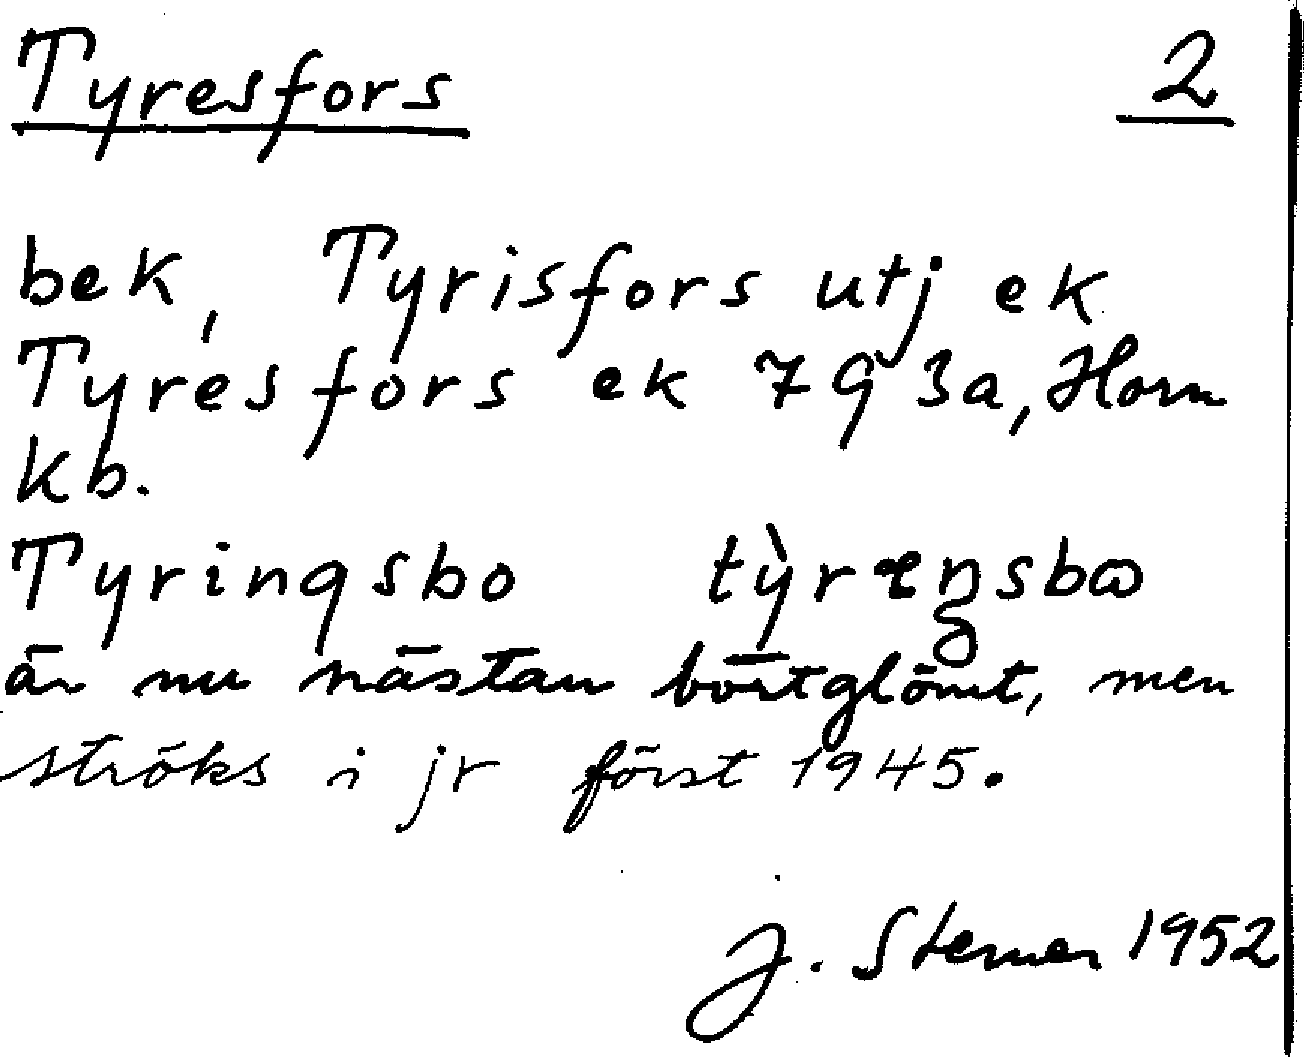 Tyresfors 2
bek, Tyrisfors utj ek
Tyresfors ek 793a, Horn
kb.
Tyringsbo tỳræŋsbɷ
är nu nästan bortglömt, men
ströks i jr först 1945.
J. Sterner 1952